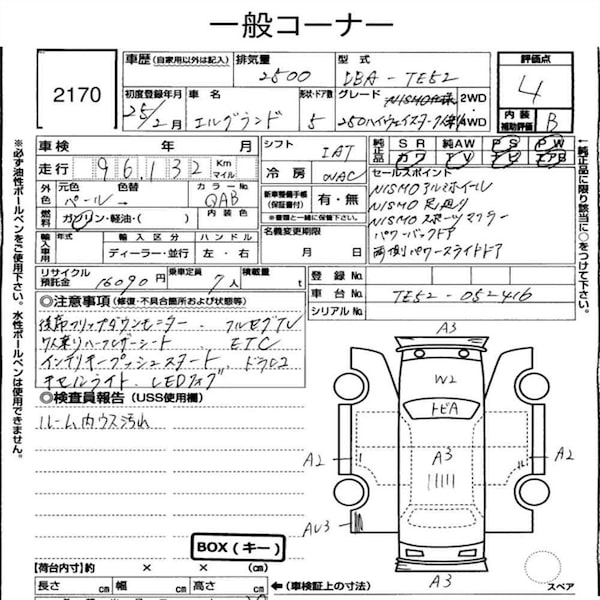 一般コーナー
2170
車歴(自家用以外は記入) 排気量 型式 評価点
2500 DBA-TE52 4
初度登録年月 車名 形状・ドア数 グレード 2WD 4WD 内装補助評価 B
25/2月 エルグランド 5 250ハイウェイスター
車検 年 月 シフト 純正品 SR 純AW PS PW
IAT カワ TV ナビ エアB
走行 96,132 Km マイル 冷房 WAC セールスポイント
外色 元色 色替 カラーNo. 新車整備手帳(保証書付) 有・無 NISMOアルミホイール
パール→ QAB NISMO足廻り
燃料 ガソリン・軽油・( ) 内装色 ※一緒に保管して下さい。 NISMOスポーツマフラー
輸入車用 年式 輸入区分 ハンドル 名義変更期限 パワーバックドア
ディーラー・並行 左・右 月 日 両側パワースライドドア
リサイクル預託金 16090円 乗車定員 7人 積載量 t 登録No.
車台No. TE52-052416
シリアルNo.
◎注意事項(修復・不具合箇所および状態等)
後席フリップダウンモニター・フルセグTV
7人乗りハーフレザーシート・ETC
インテリキープッシュスタート・ドラレコ
キセルライト・LEDフォグ
◎検査員報告(USS使用欄)
ルーム内ウス汚れ
A3
W2
トビA
A2 A3 A2
AU3
A3
スペア
BOX(キー)
【荷台内寸】約 × × (cm)
長さ cm 幅 cm 高さ cm ←(車検証上の寸法)
※必ず油性ボールペンをご使用下さい。水性ボールペンは使用できません。
←純正品に限り該当に○をつけて下さい。